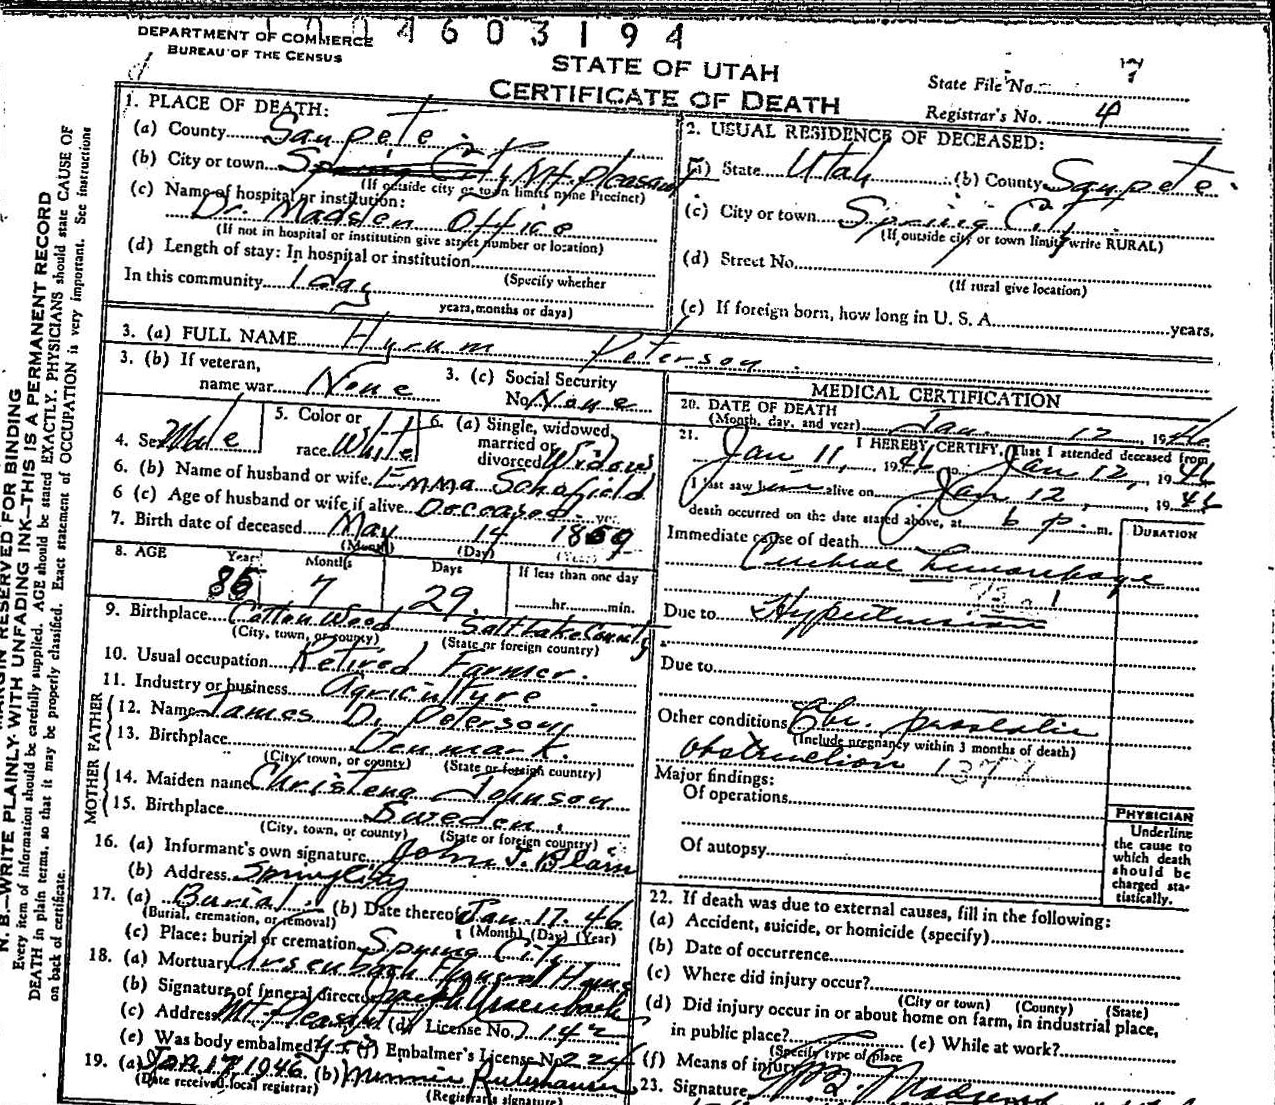 1004603194
DEPARTMENT OF COMMERCE
BUREAU OF THE CENSUS
STATE OF UTAH
CERTIFICATE OF DEATH
State File No. 7
Registrar's No. 4
N. B.—WRITE PLAINLY, WITH UNFADING INK—THIS IS A PERMANENT RECORD
MARGIN RESERVED FOR BINDING
Every item of information should be carefully supplied. AGE should be stated EXACTLY. PHYSICIANS should state CAUSE OF
DEATH in plain terms, so that it may be properly classified. Exact statement of OCCUPATION is very important. See instructions
on back of certificate.
1. PLACE OF DEATH:
(a) County Sanpete
(b) City or town Spring City Mt Pleasant
(If outside city or town limits name Precinct)
(c) Name of hospital or institution:
Dr. Madsen Office
(If not in hospital or institution give street number or location)
(d) Length of stay: In hospital or institution
(Specify whether
In this community 1 day
years, months or days)
2. USUAL RESIDENCE OF DECEASED:
(a) State Utah (b) County Sanpete
(c) City or town Spring City
(If outside city or town limits write RURAL)
(d) Street No.
(If rural give location)
(e) If foreign born, how long in U. S. A. years.
3. (a) FULL NAME Hyrum Peterson
3. (b) If veteran,
name war None
3. (c) Social Security
No. None
4. Sex Male
5. Color or
race White
6. (a) Single, widowed,
married or
divorced
6. (b) Name of husband or wife Emma Schofield
6 (c) Age of husband or wife if alive Deceased yr.
7. Birth date of deceased May 14 1869
(Month) (Day) (Year)
8. AGE
Years Months Days If less than one day
86 7 29 hr. min.
9. Birthplace Cotton Wood Salt Lake County
(City, town, or county) (State or foreign country)
10. Usual occupation Retired Farmer.
11. Industry or business Agriculture
FATHER
12. Name James D. Peterson
13. Birthplace Denmark.
(City, town, or county) (State or foreign country)
MOTHER
14. Maiden name Christena Johnson
15. Birthplace Sweden.
(City, town, or county) (State or foreign country)
16. (a) Informant's own signature John J. Blain
(b) Address Spring City
17. (a) Burial (b) Date thereof Jan. 17. 46
(Burial, cremation, or removal) (Month) (Day) (Year)
(c) Place: burial or cremation Spring City
18. (a) Mortuary Ursenbach Funeral Home
(b) Signature of funeral director Joseph Ursenbach
(c) Address Mt Pleasant (d) License No. 142
(e) Was body embalmed? yes (f) Embalmer's License No.
19. (a) Jan. 17 1946 (b) Minnie
(Date received local registrar) (Registrar's signature)
MEDICAL CERTIFICATION
20. DATE OF DEATH
(Month, day, and year) Jan. 12, 1946
21. I HEREBY CERTIFY, That I attended deceased from
Jan 11, 1946 to Jan 12, 1946
I last saw him alive on Jan 12, 1946
death occurred on the date stated above, at 6 p. m.
DURATION
Immediate cause of death
Cerebral hemorrhage
Due to Hypertension
Due to
Other conditions Chr. prostatic
(Include pregnancy within 3 months of death)
obstruction 137
Major findings:
Of operations
Of autopsy
PHYSICIAN
Underline
the cause to
which death
should be
charged sta-
tistically.
22. If death was due to external causes, fill in the following:
(a) Accident, suicide, or homicide (specify)
(b) Date of occurrence
(c) Where did injury occur?
(City or town) (County) (State)
(d) Did injury occur in or about home on farm, in industrial place,
in public place? (e) While at work?
(Specify type of place
(f) Means of injury
23. Signature Madsen